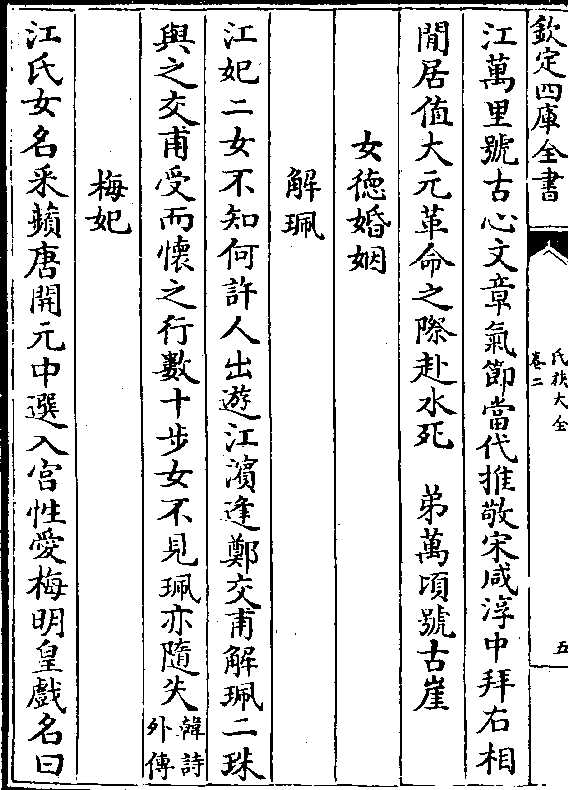 欽定四庫全書
氏族大全
卷二
五
江萬里號古心文章氣節當代推敬宋咸淳中拜右相
閒居值大元革命之際赴水死　弟萬頃號古崖
女徳婚姻
解珮
江妃二女不知何許人出遊江濱逢鄭交甫解珮二珠
與之交甫受而懷之行數十步女不見珮亦隨失韓詩外傳
梅妃
江氏女名采蘋唐開元中選入宫性愛梅明皇戲名曰